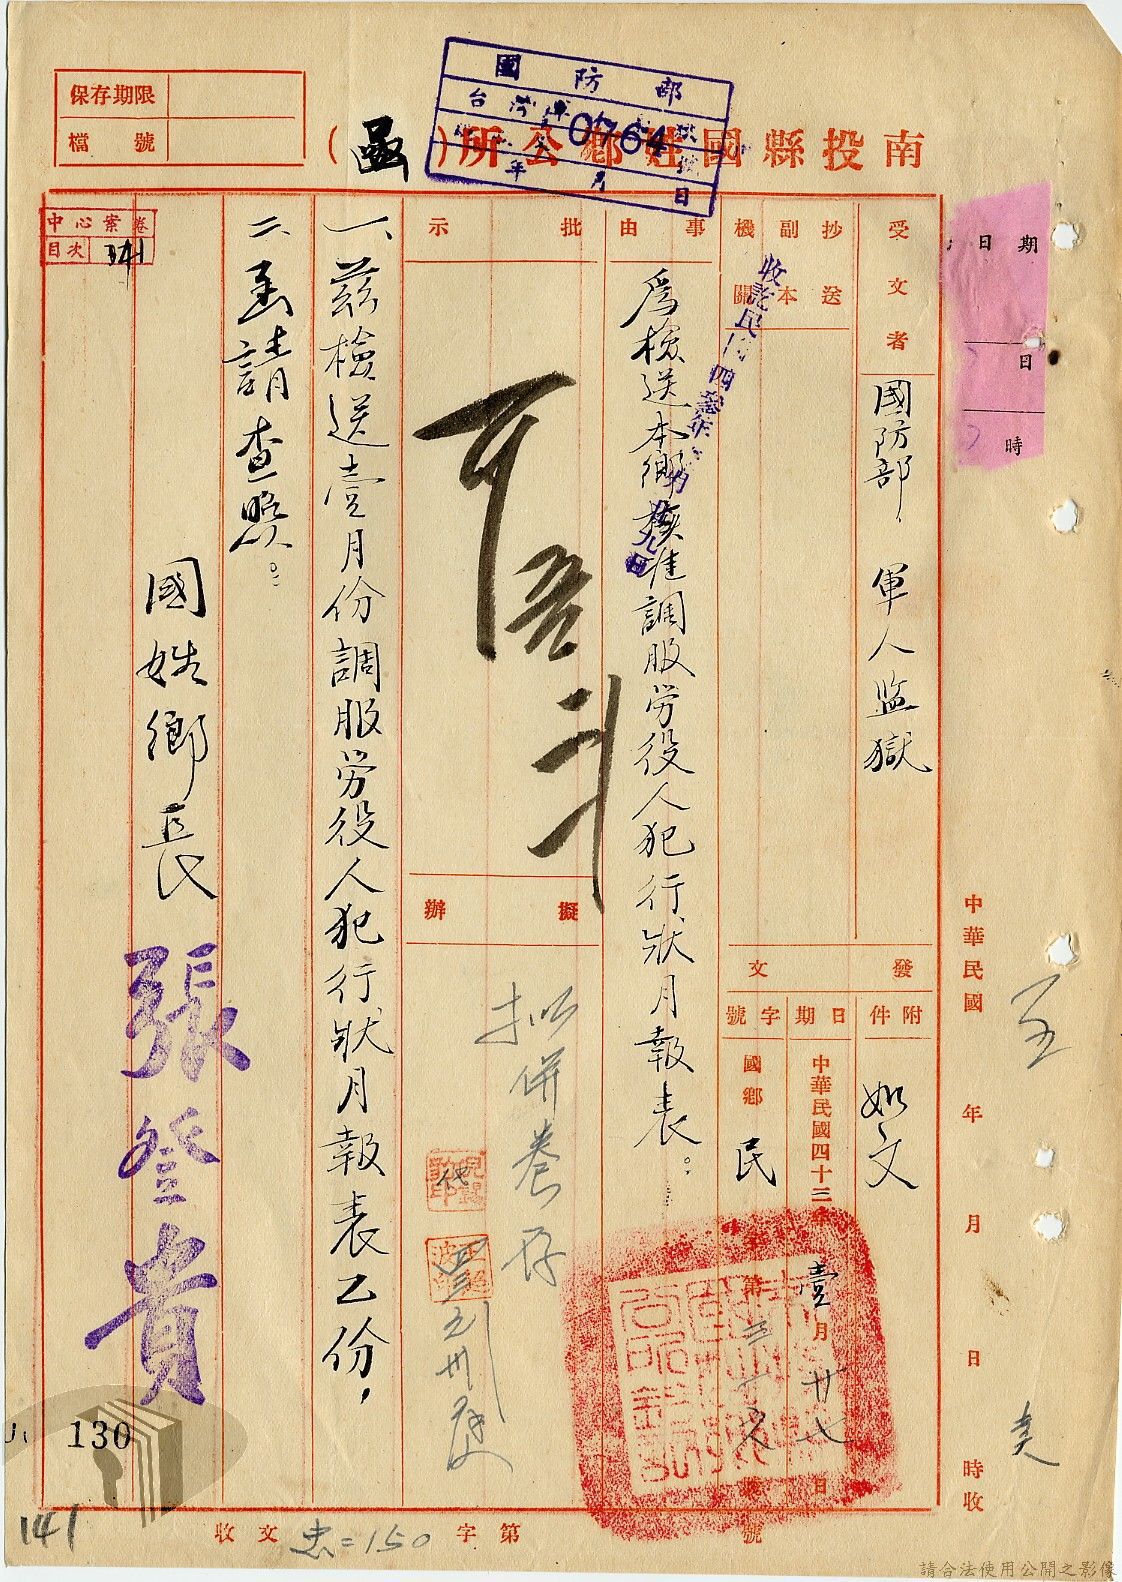 南投縣國姓鄉公所(函)
保存期限
檔號
國防部
0764
年月日
受文者
國防部軍人監獄
抄送副本機關
收訖民國四參年
事由
為檢送本鄉核准調服勞役人犯行狀月報表。
批示
擬辦
擬併卷存
代
發文
附件
如文
日期
中華民國四十三年壹月廿七日
字號
國鄉民字第
號
一、茲檢送壹月份調服勞役人犯行狀月報表乙份,
二、函請查照。
國姓鄉長
張登貴
中心案卷
目次
141
期
日
日
時
中華民國
年
月
日
時收
收文
字第
150
號
130
141
請合法使用公開之影像